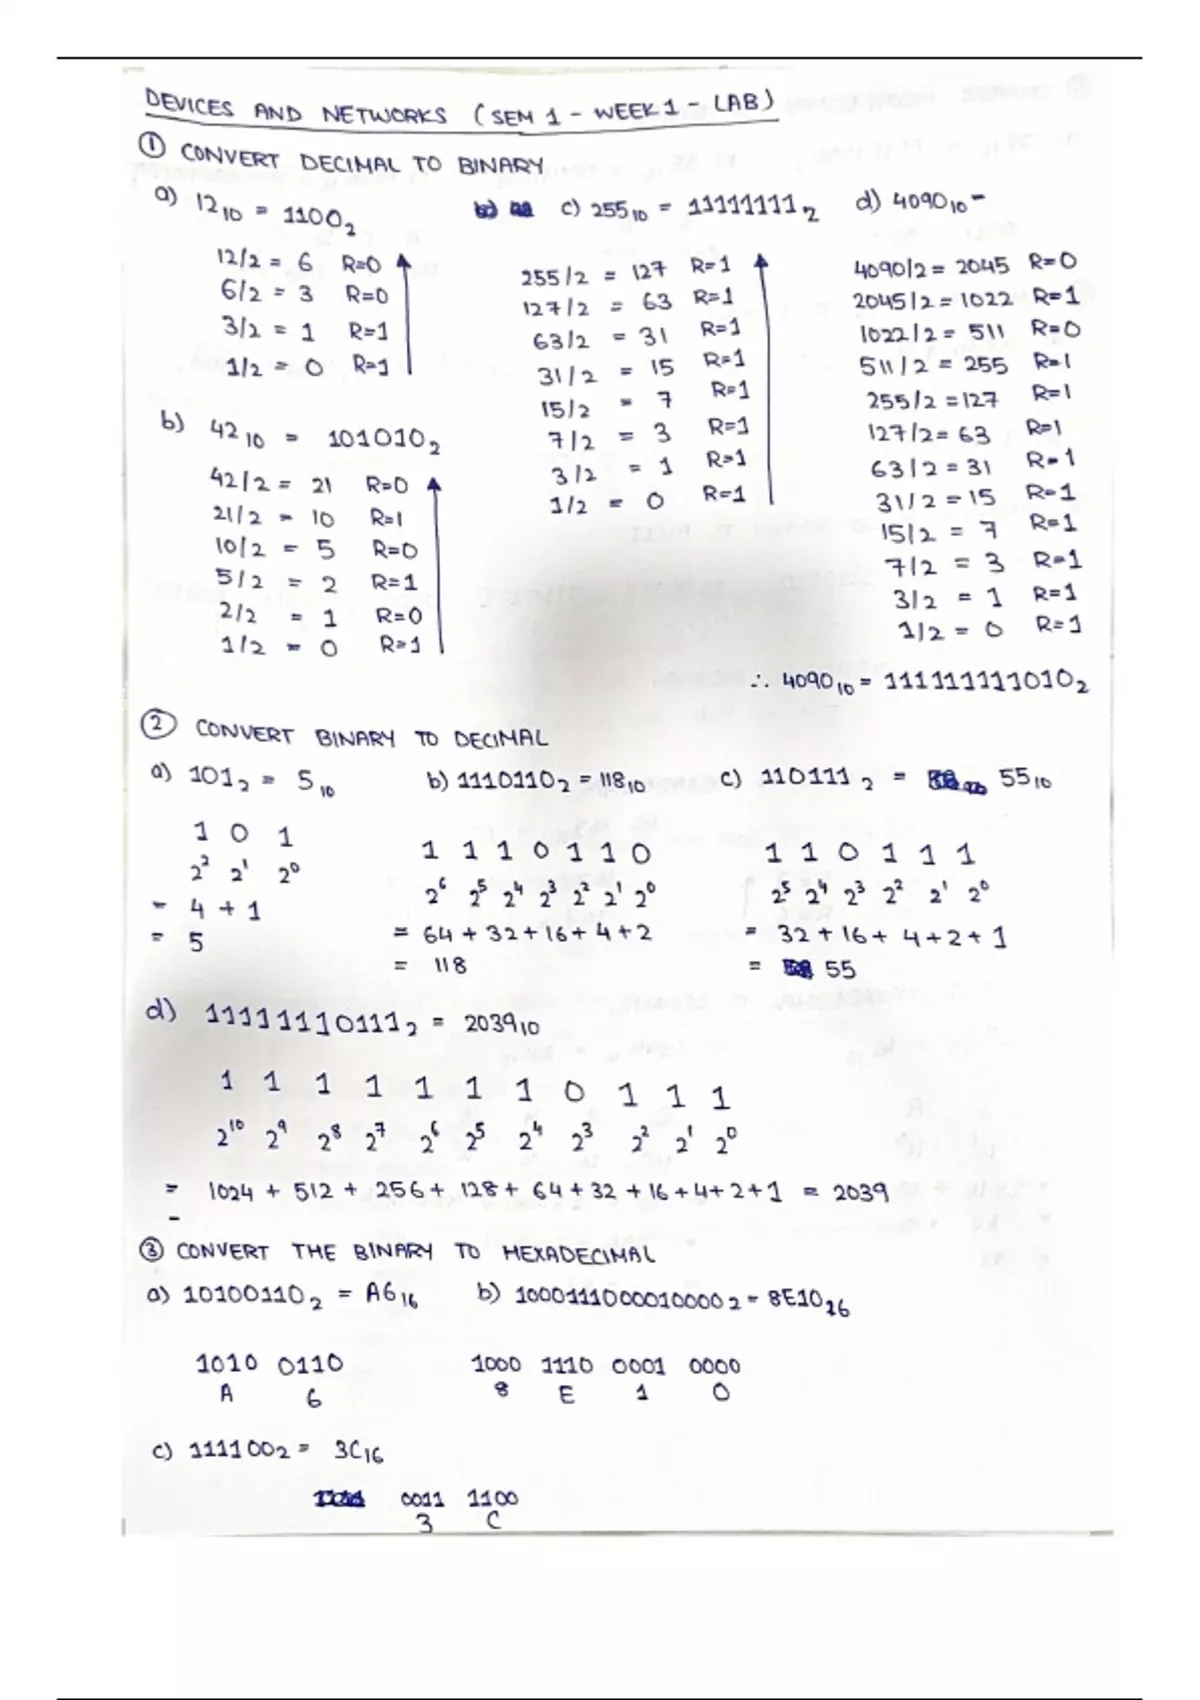 DEVICES AND NETWORKS (SEM 1 - WEEK 1 - LAB)
① CONVERT DECIMAL TO BINARY
a) 12₁₀ = 1100₂
12/2 = 6 R=0
6/2 = 3 R=0
3/2 = 1 R=1
1/2 = 0 R=1
b) 42₁₀ = 101010₂
42/2 = 21 R=0
21/2 = 10 R=1
10/2 = 5 R=0
5/2 = 2 R=1
2/2 = 1 R=0
1/2 = 0 R=1
c) 255₁₀ = 11111111₂
255/2 = 127 R=1
127/2 = 63 R=1
63/2 = 31 R=1
31/2 = 15 R=1
15/2 = 7 R=1
7/2 = 3 R=1
3/2 = 1 R=1
1/2 = 0 R=1
d) 4090₁₀ =
4090/2 = 2045 R=0
2045/2 = 1022 R=1
1022/2 = 511 R=0
511/2 = 255 R=1
255/2 = 127 R=1
127/2 = 63 R=1
63/2 = 31 R=1
31/2 = 15 R=1
15/2 = 7 R=1
7/2 = 3 R=1
3/2 = 1 R=1
1/2 = 0 R=1
∴ 4090₁₀ = 111111111010₂
② CONVERT BINARY TO DECIMAL
a) 101₂ = 5₁₀
1 0 1
2² 2¹ 2⁰
= 4 + 1
= 5
b) 1110110₂ = 118₁₀
1 1 1 0 1 1 0
2⁶ 2⁵ 2⁴ 2³ 2² 2¹ 2⁰
= 64 + 32 + 16 + 4 + 2
= 118
c) 110111₂ = 55₁₀
1 1 0 1 1 1
2⁵ 2⁴ 2³ 2² 2¹ 2⁰
= 32 + 16 + 4 + 2 + 1
= 55
d) 11111110111₂ = 2039₁₀
1 1 1 1 1 1 1 0 1 1 1
2¹⁰ 2⁹ 2⁸ 2⁷ 2⁶ 2⁵ 2⁴ 2³ 2² 2¹ 2⁰
= 1024 + 512 + 256 + 128 + 64 + 32 + 16 + 4 + 2 + 1 = 2039
③ CONVERT THE BINARY TO HEXADECIMAL
a) 10100110₂ = A6₁₆
1010 0110
A 6
b) 1000111000010000₂ = 8E10₁₆
1000 1110 0001 0000
8 E 1 0
c) 111100₂ = 3C₁₆
0011 1100
3 C